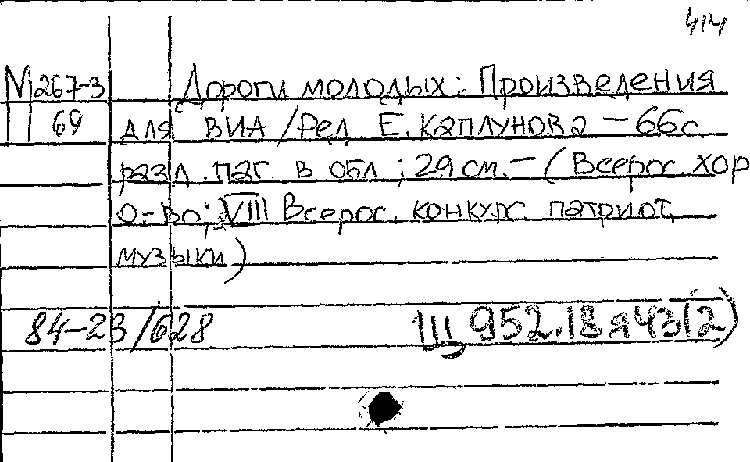 414
М 267-3 Дороги молодых: Произведения
П 69 для ВИА /Ред Е. Каплунова - 66с
разл. паг в обл; 29 см. - (Всерос. хор
о-во; VIII Всерос. конкурс патриот.
музыки)
84-23/628 Щ 952.18я43(2)